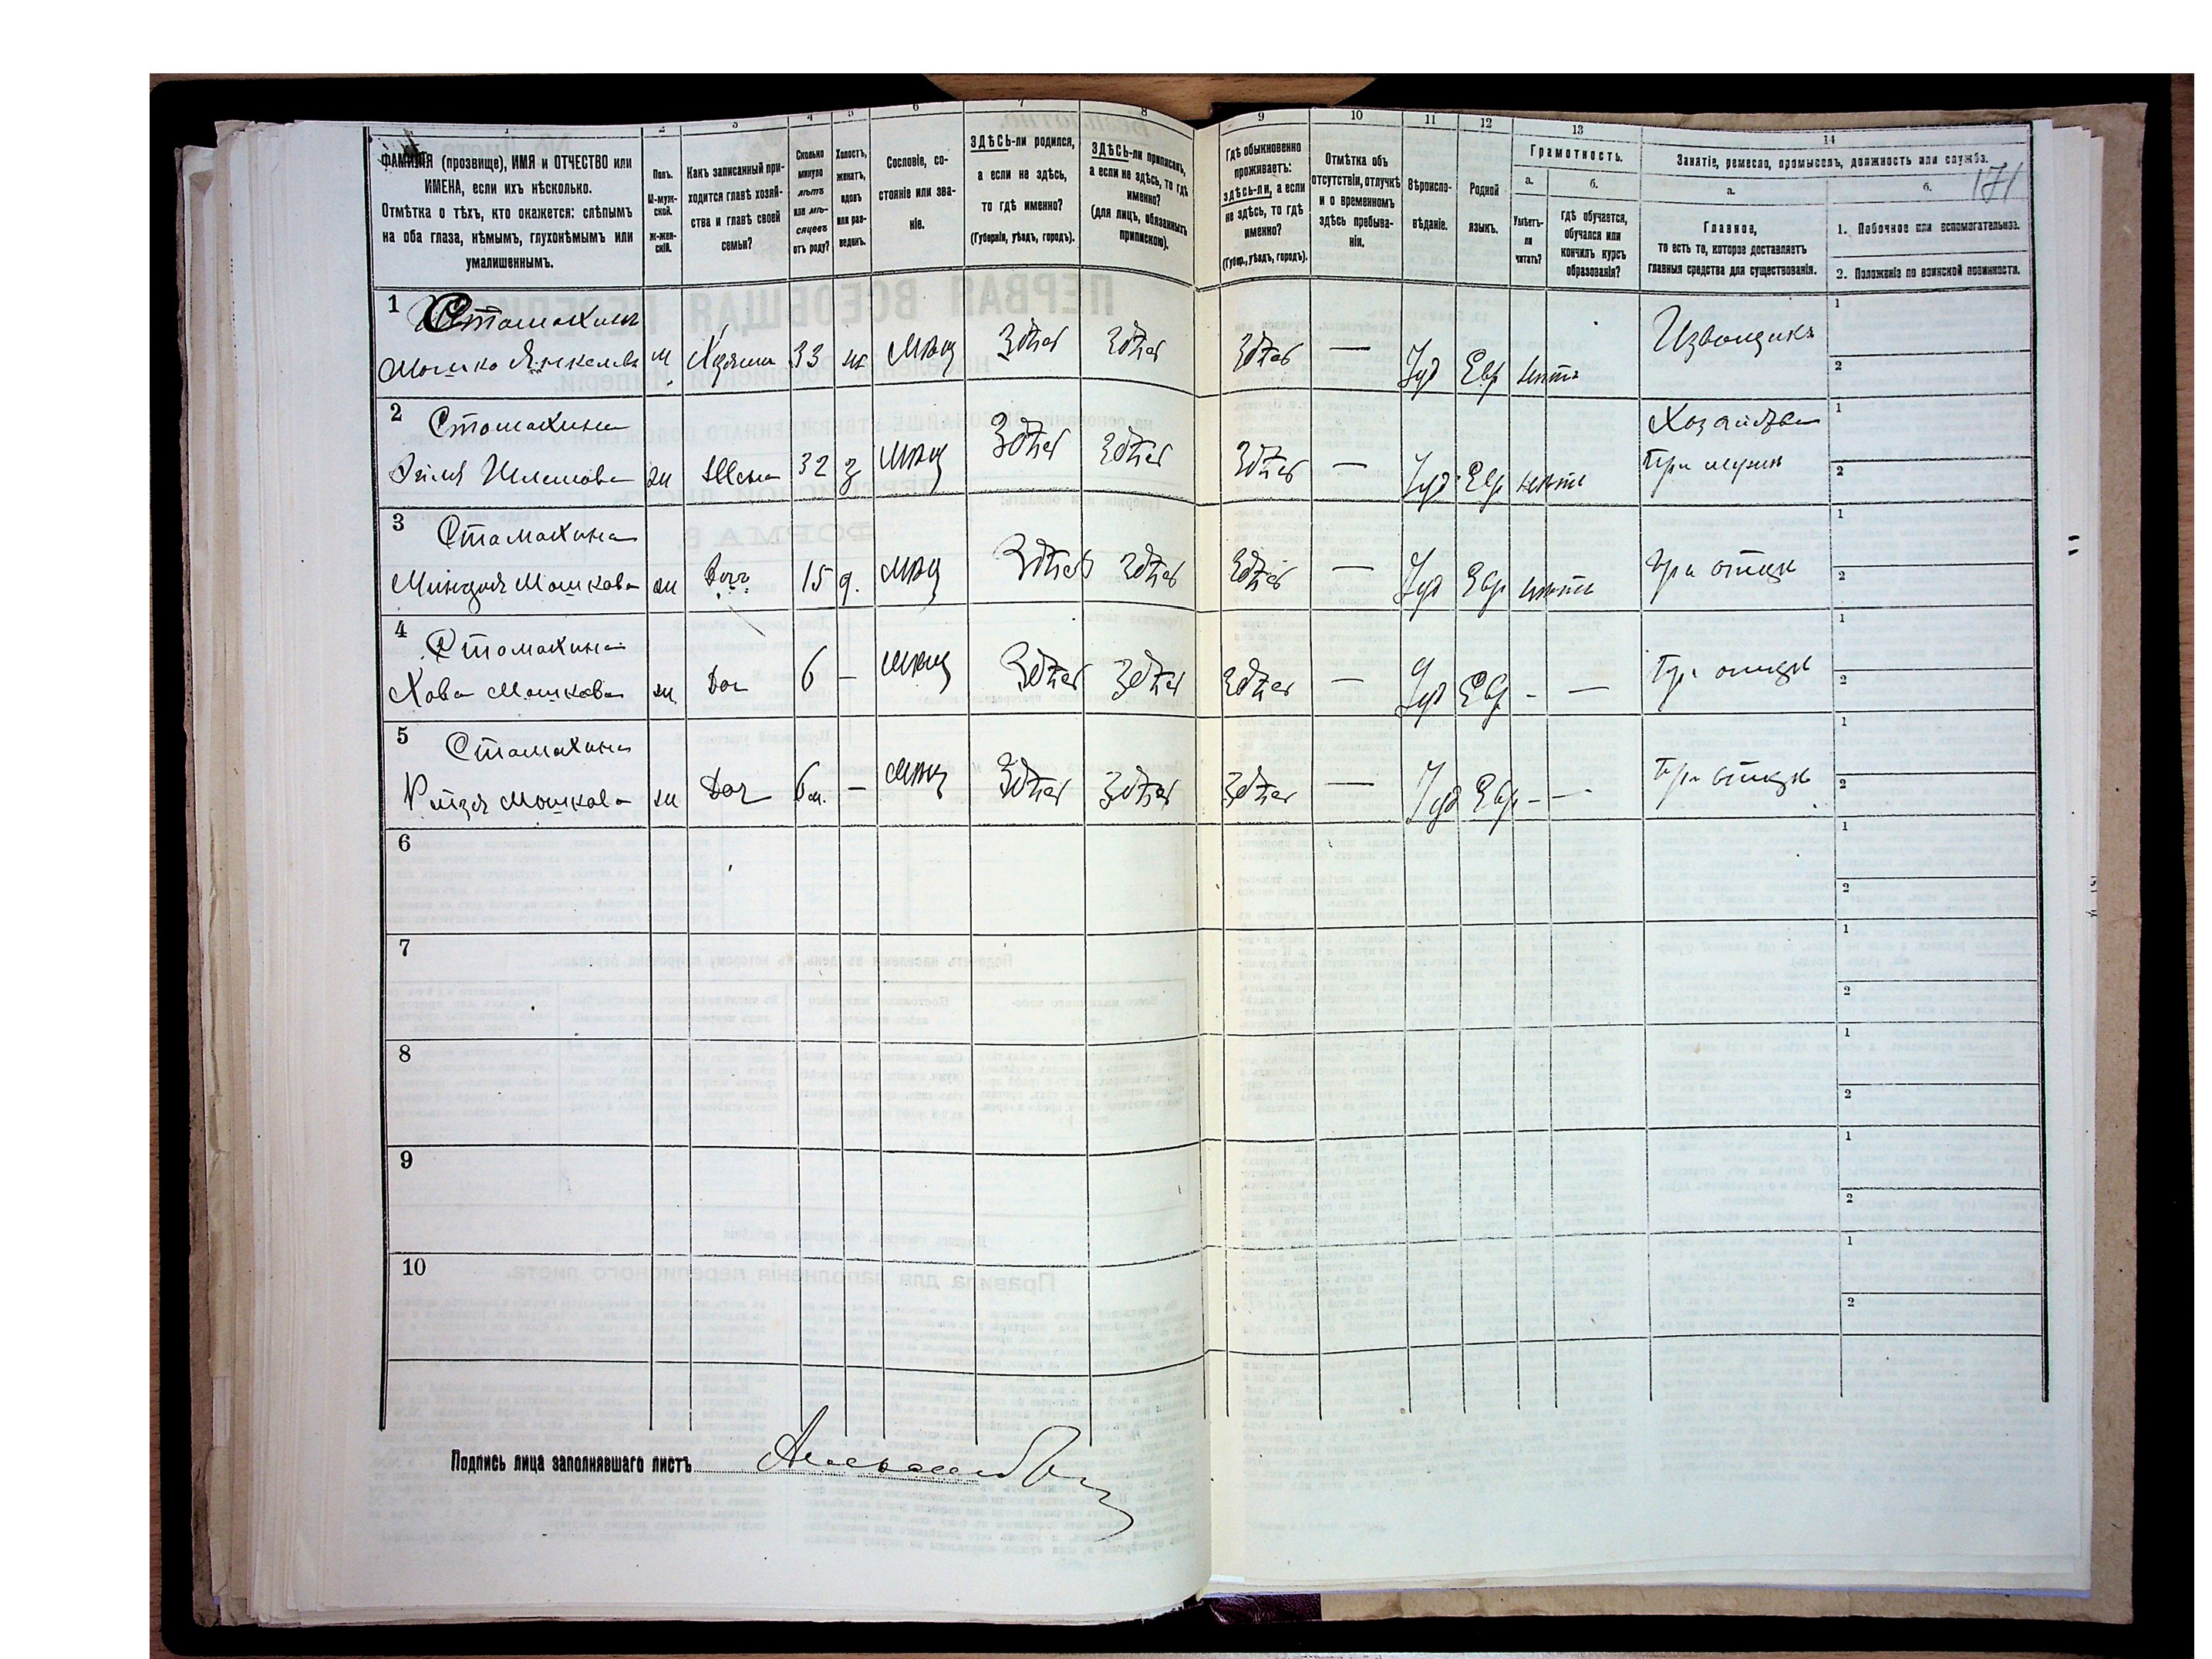 1 2 3 4 5 6 7 8 9 10 11 12 13 14
ФАМИЛІЯ (прозвище), ИМЯ и ОТЧЕСТВО или
ИМЕНА, если ихъ нѣсколько.
Отмѣтка о тѣхъ, кто окажется: слѣпымъ
на оба глаза, нѣмымъ, глухонѣмымъ или
умалишеннымъ.
Полъ.
М-муж-
ской.
Ж-жен-
скій.
Какъ записанный при-
ходится главѣ хозяй-
ства и главѣ своей
семьи?
Сколько
минуло
лѣтъ
или мѣ-
сяцевъ
отъ роду?
Холостъ,
женатъ,
вдовъ
или раз-
веденъ.
Сословіе, со-
стояніе или зва-
ніе.
ЗДѢСЬ-ли родился,
а если не здѣсь,
то гдѣ именно?
(Губернія, уѣздъ, городъ).
ЗДѢСЬ-ли приписанъ,
а если не здѣсь, то гдѣ
именно?
(для лицъ, обязанныхъ
припискою).
Гдѣ обыкновенно
проживаетъ:
здѣсь-ли, а если
не здѣсь, то гдѣ
именно?
(Губер., уѣздъ, городъ).
Отмѣтка объ
отсутствіи, отлучкѣ
и о временномъ
здѣсь пребыва-
ніи.
Вѣроиспо-
вѣданіе.
Родной
языкъ.
Грамотность.
а.
Умѣетъ-
ли
читать?
б.
Гдѣ обучается,
обучался или
кончилъ курсъ
образованія?
Занятіе, ремесло, промыселъ, должность или служба.
171
а.
Главное,
то есть то, которое доставляетъ
главныя средства для существованія.
б.
1. Побочное или вспомогательное.
2. Положеніе по воинской повинности.
1 Стомахинъ
Мошко Янкелевъ м Хозяинъ 33 ж мѣщ Здѣсь Здѣсь Здѣсь — Іуд Евр нѣтъ Извощикъ 1 2
2 Стомахина
Шлемова ж Жена 32 з мѣщ Здѣсь Здѣсь Здѣсь — Іуд Евр нѣтъ Хозяйка 1
при мужѣ 2
3 Стомахина
Миндля Мошкова ж Дочь 15 д. мѣщ Здѣсь Здѣсь Здѣсь — Іуд Евр нѣтъ при отцѣ 1 2
4 Стомахина
Хова Мошкова ж Доч 6 — мѣщ Здѣсь Здѣсь Здѣсь — Іуд Евр - — При отцѣ 1 2
5 Стомахина
Мошкова ж Доч 6 м. — мѣщ Здѣсь Здѣсь Здѣсь — Іуд Евр - — При отцѣ 1 2
6 1 2
7 1 2
8 1 2
9 1 2
10 1 2
Подпись лица заполнявшаго листъ